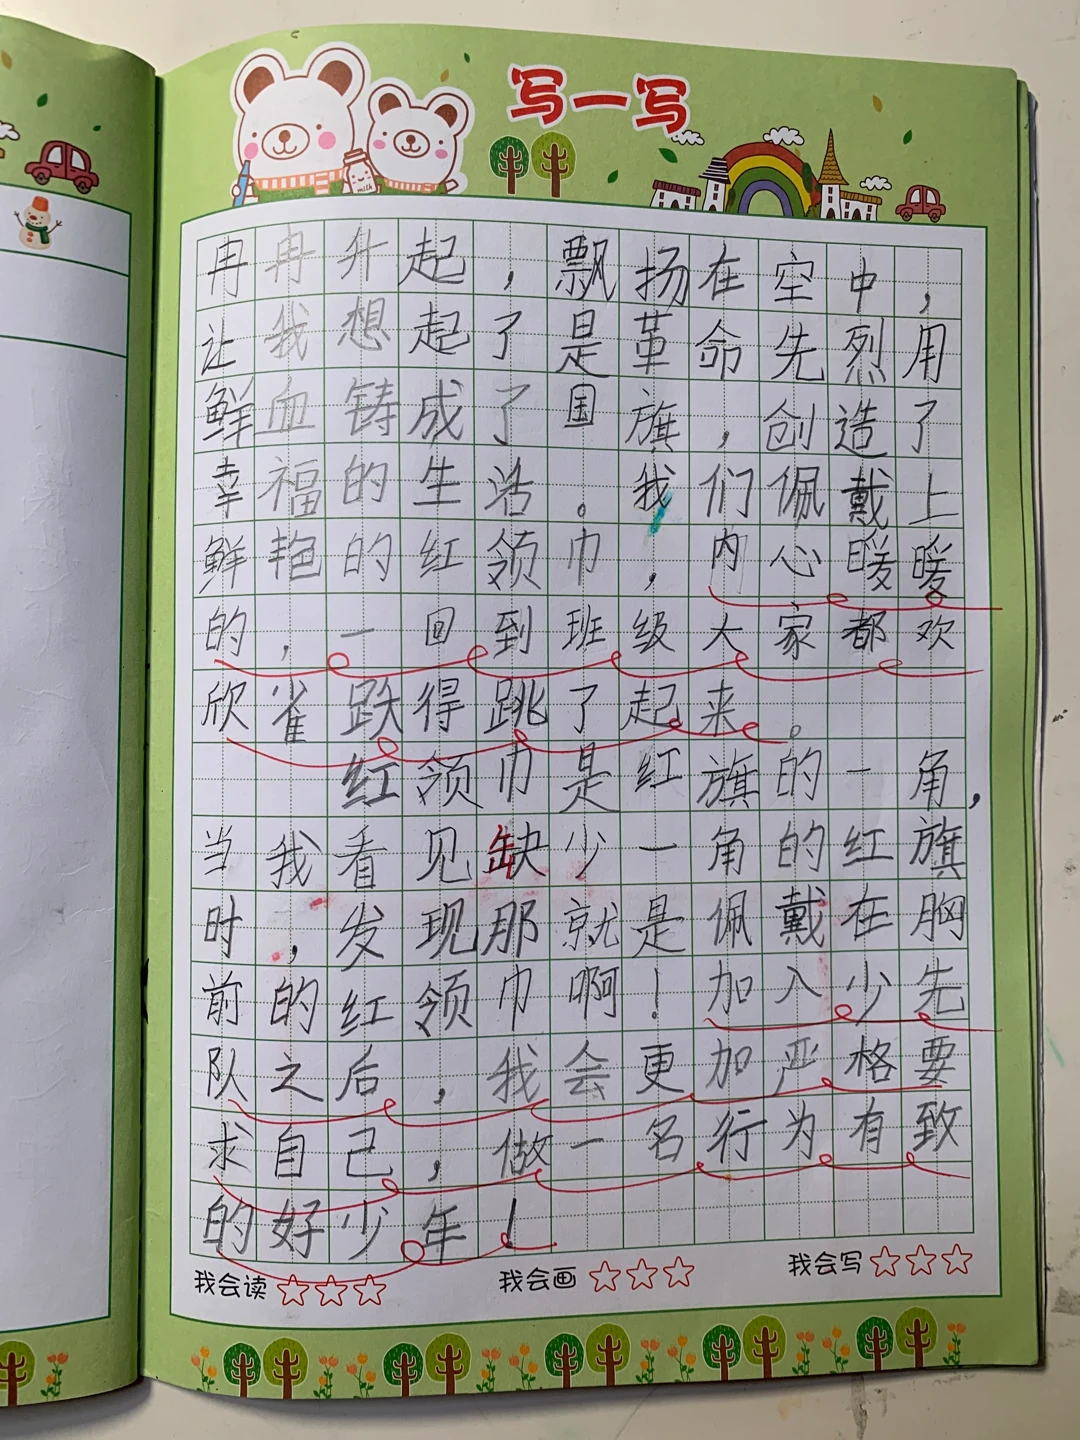 写一写
milk
冉冉升起，飘扬在空中，
让我想起了是革命先烈用
鲜血铸成了国旗，创造了
幸福的生活。我们佩戴上
鲜艳的红领巾，内心暖暖
的，一回到班级大家都欢
欣雀跌得跳了起来。
红领巾是红旗的一角，
当我看见缺少一角的红旗
时，发现那就是佩戴在胸
前的红领巾啊！加入少先
队之后，我会更加严格要
求自己，做一名行为有致
的好少年！
我会读☆☆☆ 我会画☆☆☆ 我会写☆☆☆